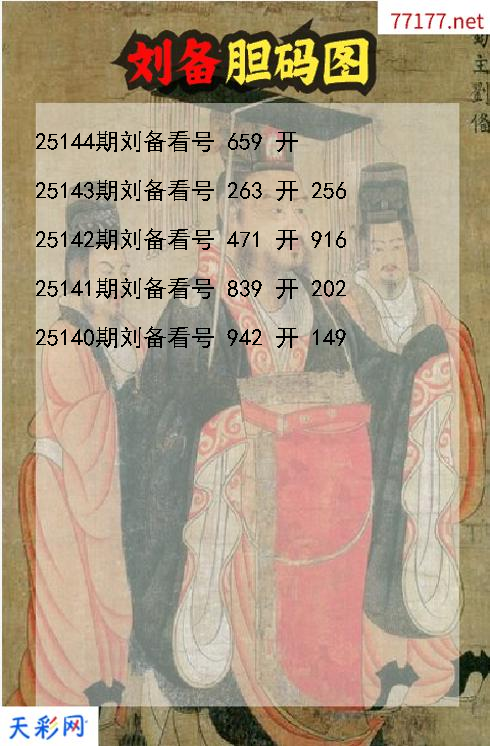 77177.net
蜀主劉備
刘备胆码图
25144期刘备看号 659 开
25143期刘备看号 263 开 256
25142期刘备看号 471 开 916
25141期刘备看号 839 开 202
25140期刘备看号 942 开 149
天彩网